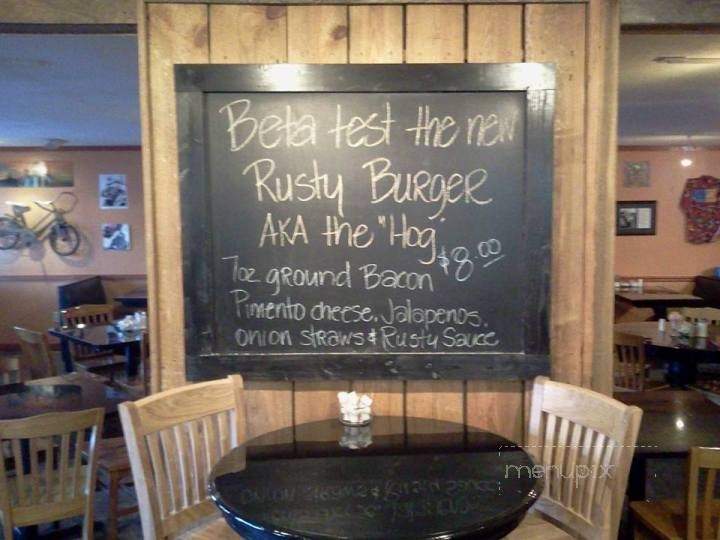 Beta test the new
Rusty Burger
AKA the "Hog"
$8.00
7oz ground Bacon
Pimento cheese, Jalapenos,
onion straws & Rusty Sauce
menupix